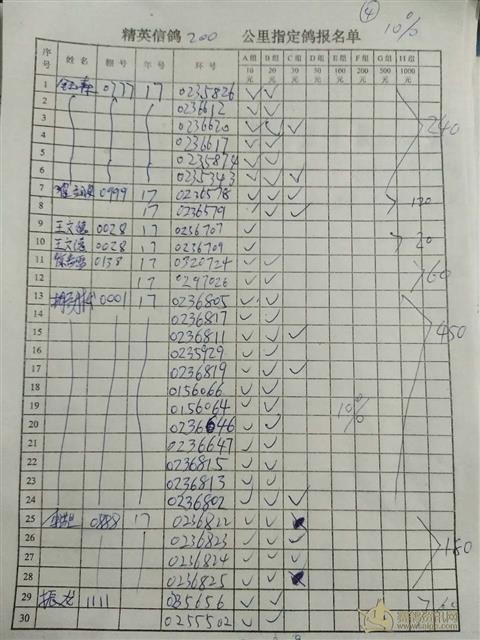 ④ 10%
精英信鸽 200 公里指定鸽报名单
序号 姓名 棚号 年号 环号 A组10元 B组20元 C组30元 D组50元 E组100元 F组200元 G组500元 H组1000元
1 0777 17 0235826 ✓ ✓
2 0236612 ✓ ✓
3 0236620 ✓ ✓ ✓ 240
4 0236617 ✓ ✓
5 0235874 ✓ ✓
6 0235343 ✓ ✓ ✓
7 0999 17 0236578 ✓ ✓ ✓
8 17 0236579 ✓ ✓ ✓ 120
9 0028 17 0236707 ✓
10 0028 17 0236709 ✓ 20
11 0138 17 0320724 ✓ ✓
12 17 0297026 ✓ ✓ 60
13 0001 17 0236805 ✓ ✓
14 0236817 ✓ ✓
15 0236811 ✓ ✓ ✓ 450
16 0235929 ✓ ✓
17 0236819 ✓ ✓ ✓
18 0156066 ✓ ✓
19 0156064 ✓ ✓
20 0236646 ✓ ✓ 10%
21 0236647 ✓ ✓
22 0236815 ✓ ✓
23 0236813 ✓ ✓
24 0236802 ✓ ✓ ✓
25 0888 17 0236822 ✓ ✓
26 0236823 ✓ ✓
27 0236824 ✓ ✓ 180
28 0236825 ✓ ✓
29 振龙 1111 ✓ ✓ 60
30 0255502 ✓ ✓